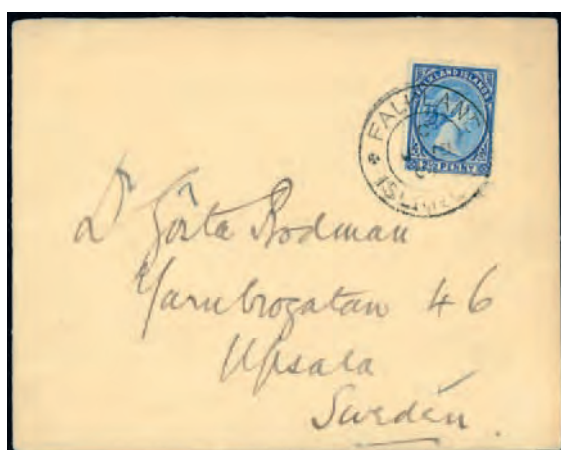 FALKLAND ISLANDS
2½ PENNY
FALKLAND
ISLANDS
Dr Gösta Bodman
Jarnbrogatan 46
Upsala
Sweden.